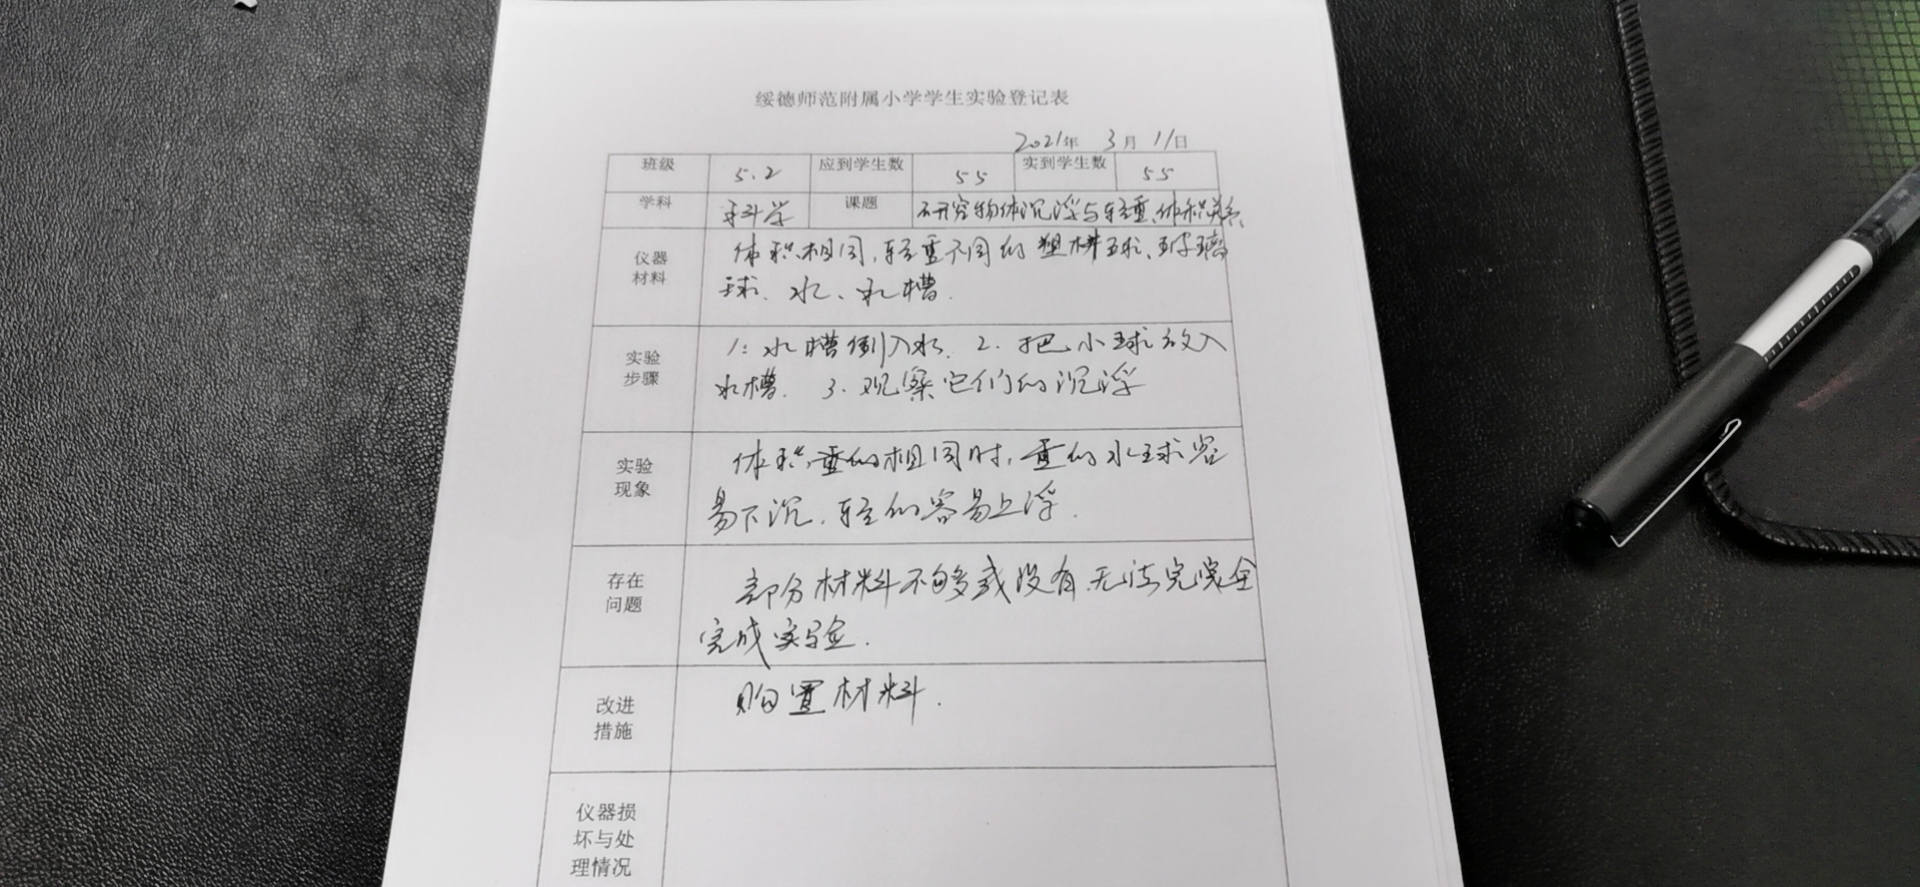 绥德师范附属小学学生实验登记表
2021年 3月 11日
班级 5.2 应到学生数 55 实到学生数 55
学科 科学 课题 研究物体沉浮与轻重、体积关系
仪器材料
体积相同,轻重不同的塑料球、玻璃
球、水、水槽.
实验步骤
1: 水槽倒入水. 2. 把小球放入
水槽. 3. 观察它们的沉浮
实验现象
体积相同时,重的小球容
易下沉,轻的容易上浮.
存在问题
部分材料不够或没有,无法完全
完成实验.
改进措施
购置材料.
仪器损坏与处理情况